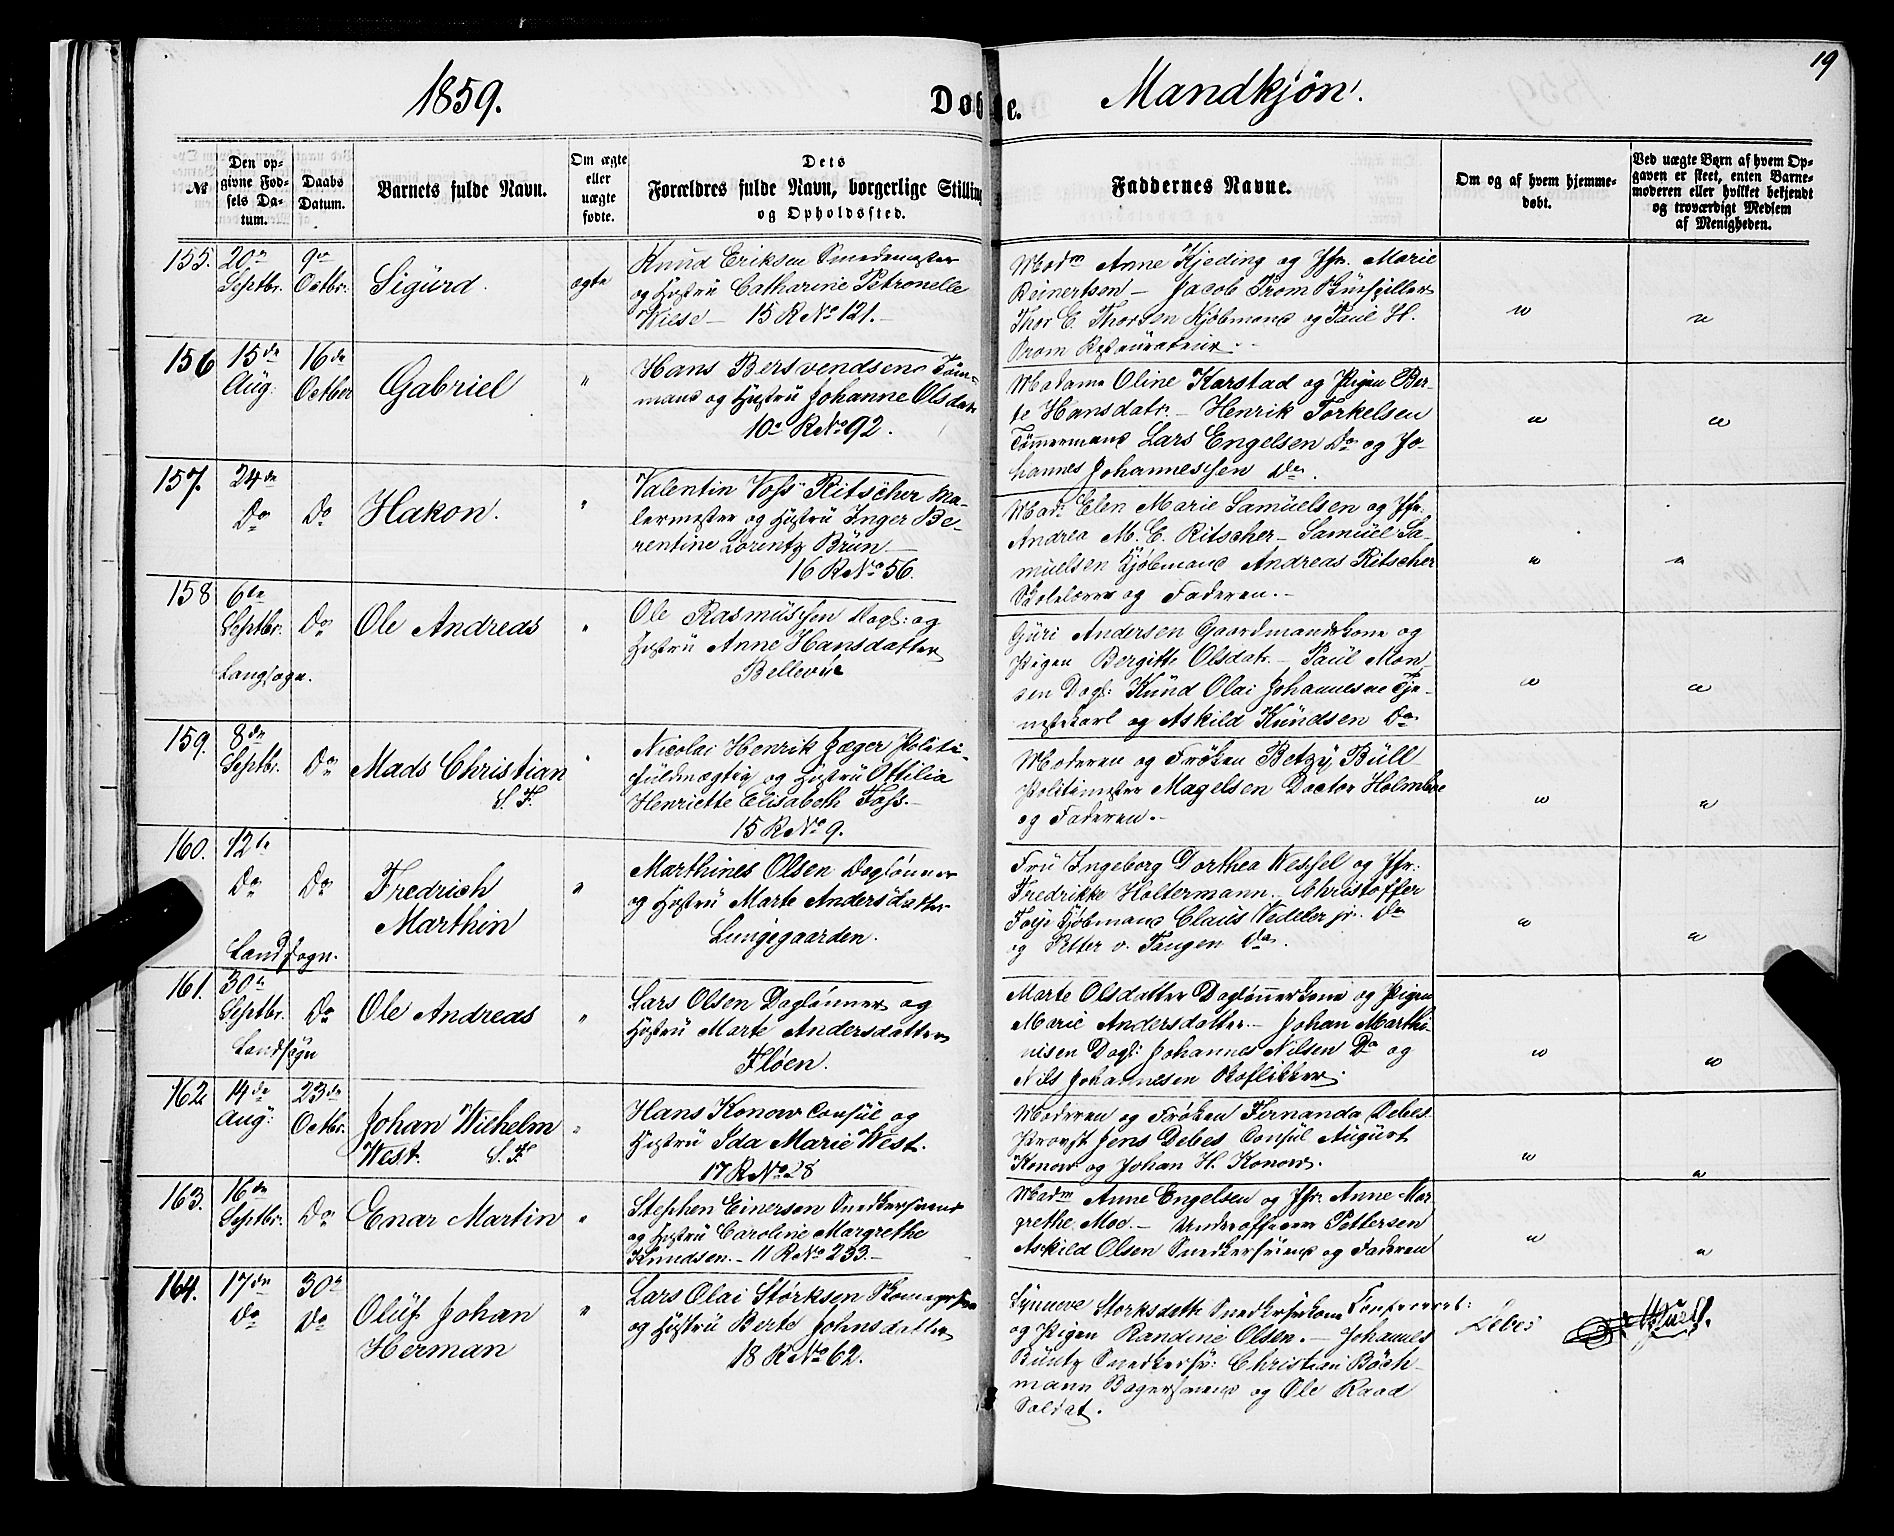 19
1859.
Døbte.
Mandkjön.
No
Den op-
givne Fød-
sels Da-
tum.
Daabs
Datum.
Barnets fulde Navn.
Om ægte
eller
uægte
fødte.
Dets
Forældres fulde Navn, borgerlige Stilling
og Opholdssted.
Faddernes Navne.
Om og af hvem hjemme-
døbt.
Ved uægte Børn af hvem Op-
gaven er skeet, enten Barne-
moderen eller hvilket bekjendt
og troværdigt Medlem
af Menigheden.
155.
20de
Septbr.
9de
Octbr.
Sigürd.
ægte
Knud Eriksen Smedemester
og Hustrü Catharine Petronelle
Wiese - 15 R No 121.-
Madm Anne Kjeding og Jfr. Marie
Beinertsen - Jacob From
Thor E. Thorsen Kjöbmand og Paül H.
From Restaürateur.
156
15de
Aug:
16de
Octber
Gabriel
"
Hans Bersvendsen Töm-
mand og Hustrü Johanne Olsdatr
10de R No 92.
Madame Oline Karstad og Pigen Ber-
te Hansdatr.- Henrik Torkelsen
Tömmermand Lars Engelsen Do og Jo-
hannes Johannessen Do.
157.
24de
Do
Do
Hakon.
"
Valentin Voss Ritscher Ma-
lermester og Hustrü Inger Be-
rentine Lorentz Brün
16 R No 56.
Mad. Elen Marie Samüelsen og Jfr.
Andrea M. C. Ritscher - Samüel Sa-
müelsen Kjöbmand Andreas Ritscher
Skolelærer og Faderen.-
158
6te
Septbr.
Do
Langsogn.
Ole Andreas
"
Ole Rasmüssen Dagl: og
Hustrü Anne Hansdatter
Bellevüe
Güri Andersen Gaardmandskone og
Pigen Bergitte Olsdatr.- Paül Mon-
sen Dagl: Knüd Olai Johannesen Tje-
nestekarl og Askild Knüdsen Do
159.
8de
Septbr.
Do
Mads Christian
S. F.
"
Nicolai Henrik Jæger Politi-
füldmægtig og Hustrü Ottilia
Henriette Elisabeth Foss.-
15 R No 9.
Moderen og Fröken Betzy Büll
Politimester Magelsen Doctor Holmboe
og Faderen.-
160.
12te
Do
Do
Landsogn.
Fredrich
Marthin
"
Marthines Olsen Daglönner
og Hustrü Marte Andersdatter
Lungegaarden.
Frü Ingeborg Dorthea Wessel og Jfr:
Fredrikke Holtermann. Christoffer
Kjöbmand Claüs Vedeler jr. Do
og Petter v. Tangen Do.
161.
30te
Septbr.
Do
Landsogn
Ole Andreas
"
Lars Olsen Daglönner og
Hustrü Marte Andersdatter
Flöen.
Marte Olsdatter Daglönnerkone og Pigen
Marie Andersdatter.- Johan Marthi-
nisen Dagl: Johannes Nilsen Do og
Nils Johannesen Skoflikker.
162
14de
Aug:
23de
Octbr.
Johan Wilhelm
West. S. F.
"
Hans Konow Consül og
Hustrü Ida Marie West.
17 R No 28
Moderen og Fröken Fernanda Debes
Provst Jens Debes Consül Augüst
Konow og Johan H. Konow.
163.
16de
Septbr.
Do
Enar Martin
"
Stephen Einersen Snedkersvend
og Hustrü Caroline Margrethe
Knudsen.- 11 R No 253.-
Madm Anne Engelsen og Jfr. Anne Mar-
grethe Moe.- Underofficeer Pettersen
Askild Olsen Snedkersvend og Faderen
164.
17de
Do
30te
Do
Olüf Johan
Herman
"
Lars Olai Störksen
og Hustrü Berte Johnsdatter
18 R No 62.
Synneve Storksdattr Snedkersvkone
og Pigen Randine Olsen.- Johannes
Büntz Snedkersv: Christian Böch-
mann Bagersvend og Ole Raad
Soldat.
Debes